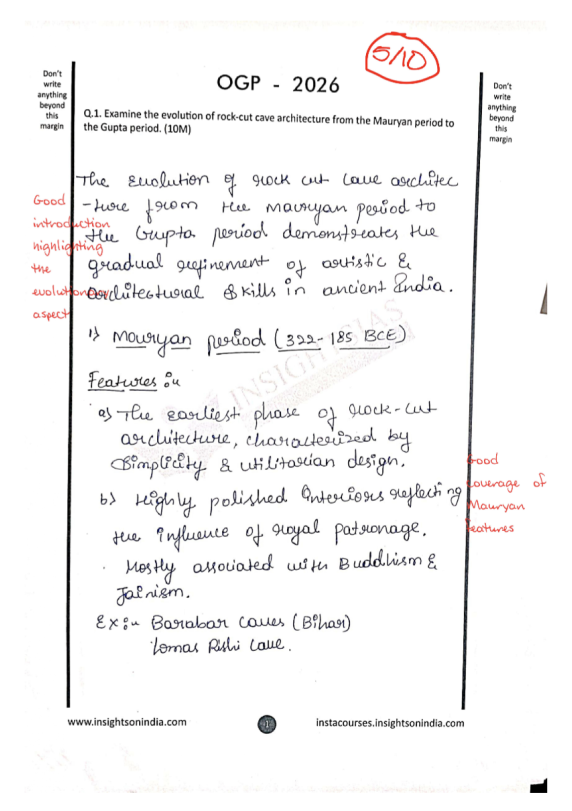 5/10
Don't
write
anything
beyond
this
margin
OGP - 2026
Don't
write
anything
beyond
this
margin
Q.1. Examine the evolution of rock-cut cave architecture from the Mauryan period to
the Gupta period. (10M)
The Evolution of rock cut cave architec
-ture from the Mauryan period to
the Gupta period demonstrates the
gradual refinement of artistic &
architectural skills in ancient India.
Good
introduction
highlighting
the
evolutionary
aspect
1) Mauryan period (322-185 BCE)
Features :-
a) The earliest phase of rock-cut
architecture, characterized by
Simplicity & utilitarian design.
b) Highly polished interiors reflecting
the influence of royal patronage.
. Mostly associated with Buddhism &
Jainism.
Good
coverage of
Mauryan
features
Ex :- Barabar caves (Bihar)
Lomas Rishi Cave.
INSIGHTSIAS
www.insightsonindia.com
1
instacourses.insightsonindia.com